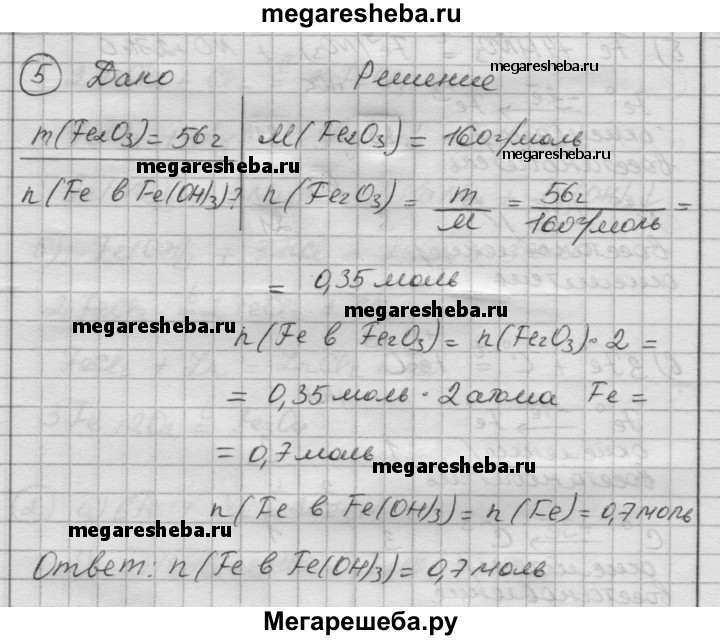 megaresheba.ru
5 Дано Решение
megaresheba.ru
m(Fe2O3)=56г M(Fe2O3)=160г/моль
megaresheba.ru
megaresheba.ru
n(Fe в Fe(OH)3)? n(Fe2O3) = m/M = 56г/160г/моль =
= 0,35 моль
megaresheba.ru
megaresheba.ru
n(Fe в Fe2O3) = n(Fe2O3)·2 =
= 0,35 моль · 2 атома Fe =
= 0,7 моль
megaresheba.ru
n(Fe в Fe(OH)3) = n(Fe) = 0,7 моль
megaresheba.ru
Ответ: n(Fe в Fe(OH)3) = 0,7 моль
Мегарешеба.ру